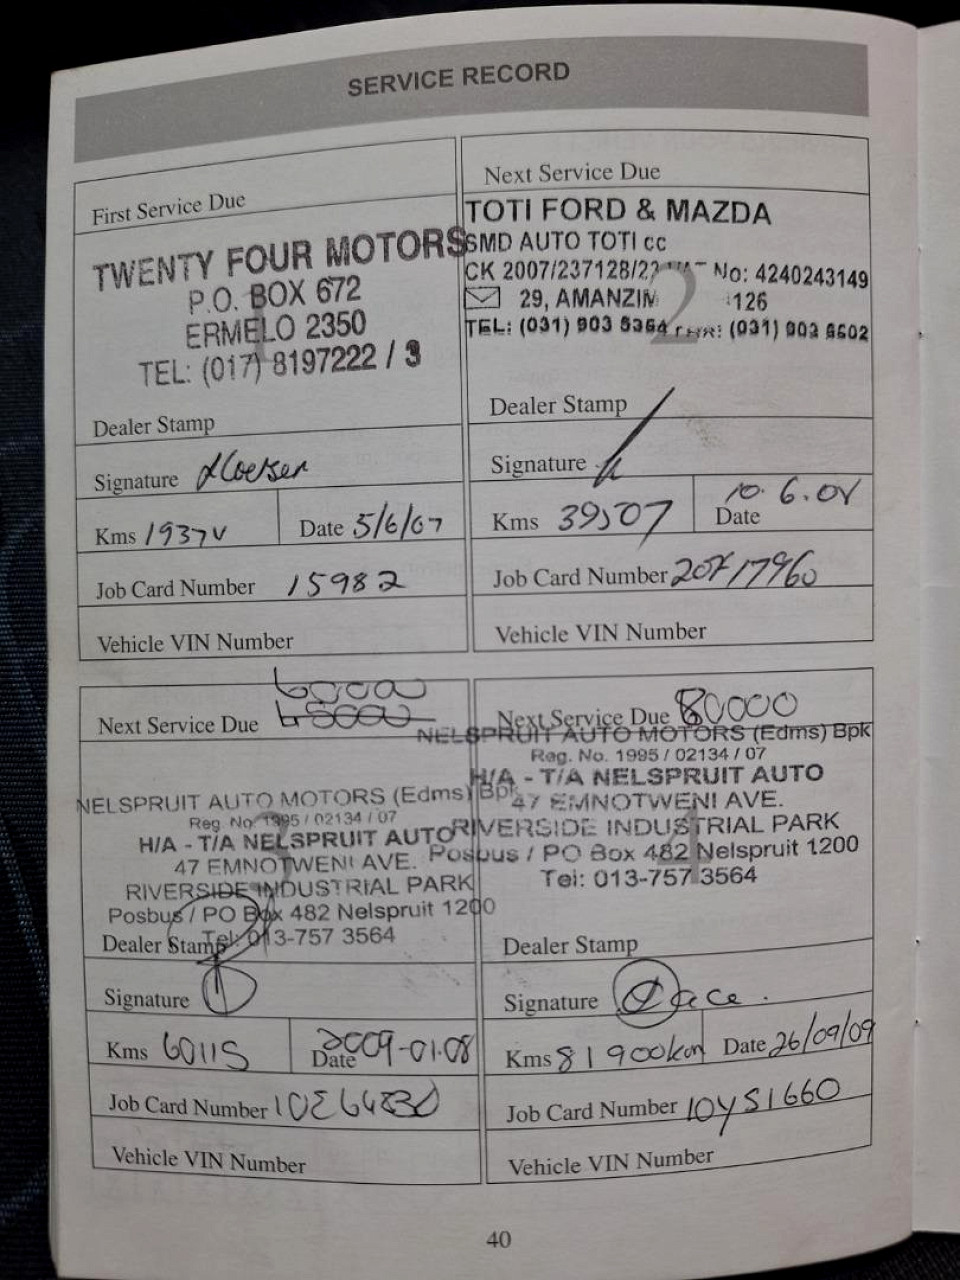 SERVICE RECORD
First Service Due
TWENTY FOUR MOTORS
P.O. BOX 672
ERMELO 2350
TEL: (017) 8197222 / 3
Dealer Stamp
Signature
Kms Date 5/6/07
Job Card Number 15982
Vehicle VIN Number
Next Service Due
TOTI FORD & MAZDA
SMD AUTO TOTI cc
CK 2007/237128/23 VAT No: 4240243149
29, AMANZIM 126
TEL: (031) 903 5364 (031) 903 6602
2
Dealer Stamp
Signature
Kms 39507 Date
Job Card Number
Vehicle VIN Number
Next Service Due
NELSPRUIT AUTO MOTORS (Edms) Bpk
Reg. No. 1995 / 02134 / 07
H/A - T/A NELSPRUIT AUTO
47 EMNOTWENI AVE.
RIVERSIDE INDUSTRIAL PARK
Posbus / PO Box 482 Nelspruit 1200
Tel: 013-757 3564
Dealer Stamp
Signature
Kms 60115 Date 2009-01-08
Job Card Number
Vehicle VIN Number
Next Service Due 80000
NELSPRUIT AUTO MOTORS (Edms) Bpk
Reg. No. 1995 / 02134 / 07
H/A - T/A NELSPRUIT AUTO
47 EMNOTWENI AVE.
RIVERSIDE INDUSTRIAL PARK
Posbus / PO Box 482 Nelspruit 1200
Tel: 013-757 3564
4
Dealer Stamp
Signature
Kms 81900km Date 26/09/09
Job Card Number 10YS1660
Vehicle VIN Number
40